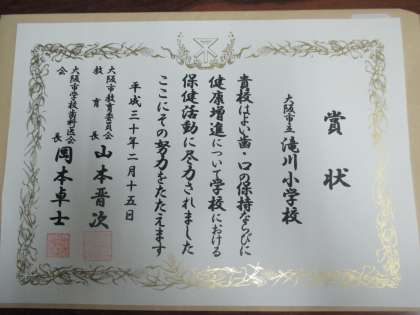 賞状
大阪市立滝川小学校
貴校はよい歯・口の保持ならびに
健康増進について学校における
保健活動に尽力されました
ここにその努力をたたえます
平成三十年二月十五日
大阪市教育委員会
教育長 山本晋次
大阪市学校歯科医会
会長 岡本卓士